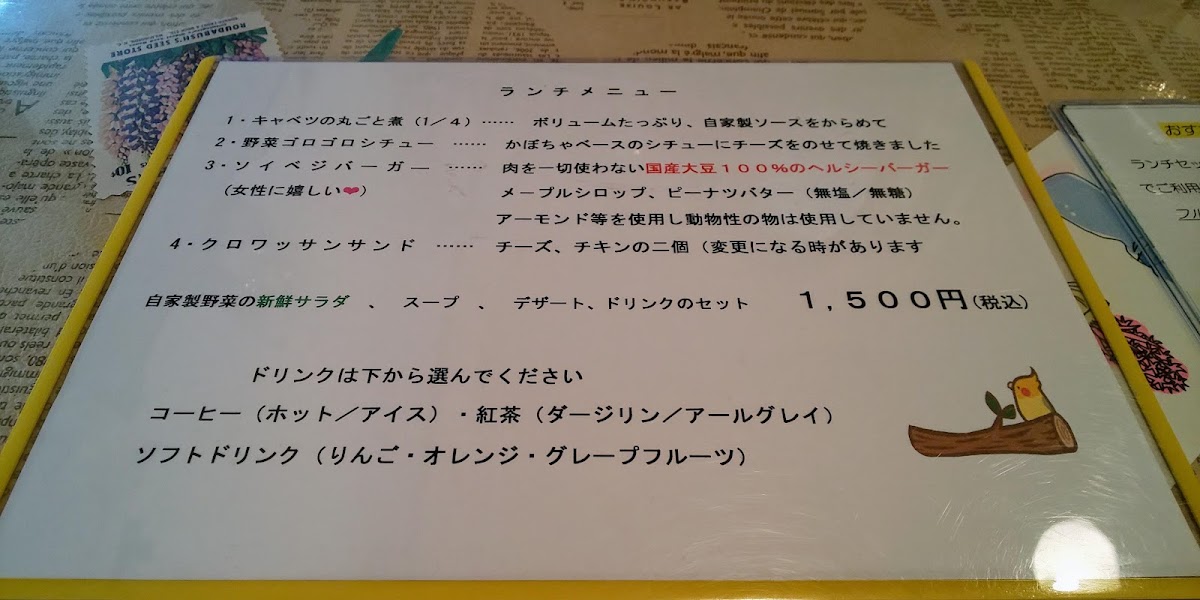 ROUDABUSH'S SEED STORE
ランチメニュー
1・キャベツの丸ごと煮（1／4）…… ボリュームたっぷり、自家製ソースをからめて
2・野菜ゴロゴロシチュー …… かぼちゃベースのシチューにチーズをのせて焼きました
3・ソイベジバーガー …… 肉を一切使わない国産大豆１００％のヘルシーバーガー
（女性に嬉しい❤） メープルシロップ、ピーナツバター（無塩／無糖）
アーモンド等を使用し動物性の物は使用していません。
4・クロワッサンサンド …… チーズ、チキンの二個（変更になる時があります
自家製野菜の新鮮サラダ 、 スープ 、 デザート、ドリンクのセット １，５００円(税込)
ドリンクは下から選んでください
コーヒー（ホット／アイス）・紅茶（ダージリン／アールグレイ）
ソフトドリンク（りんご・オレンジ・グレープフルーツ）
おす
ランチセッ
でご利用
フル